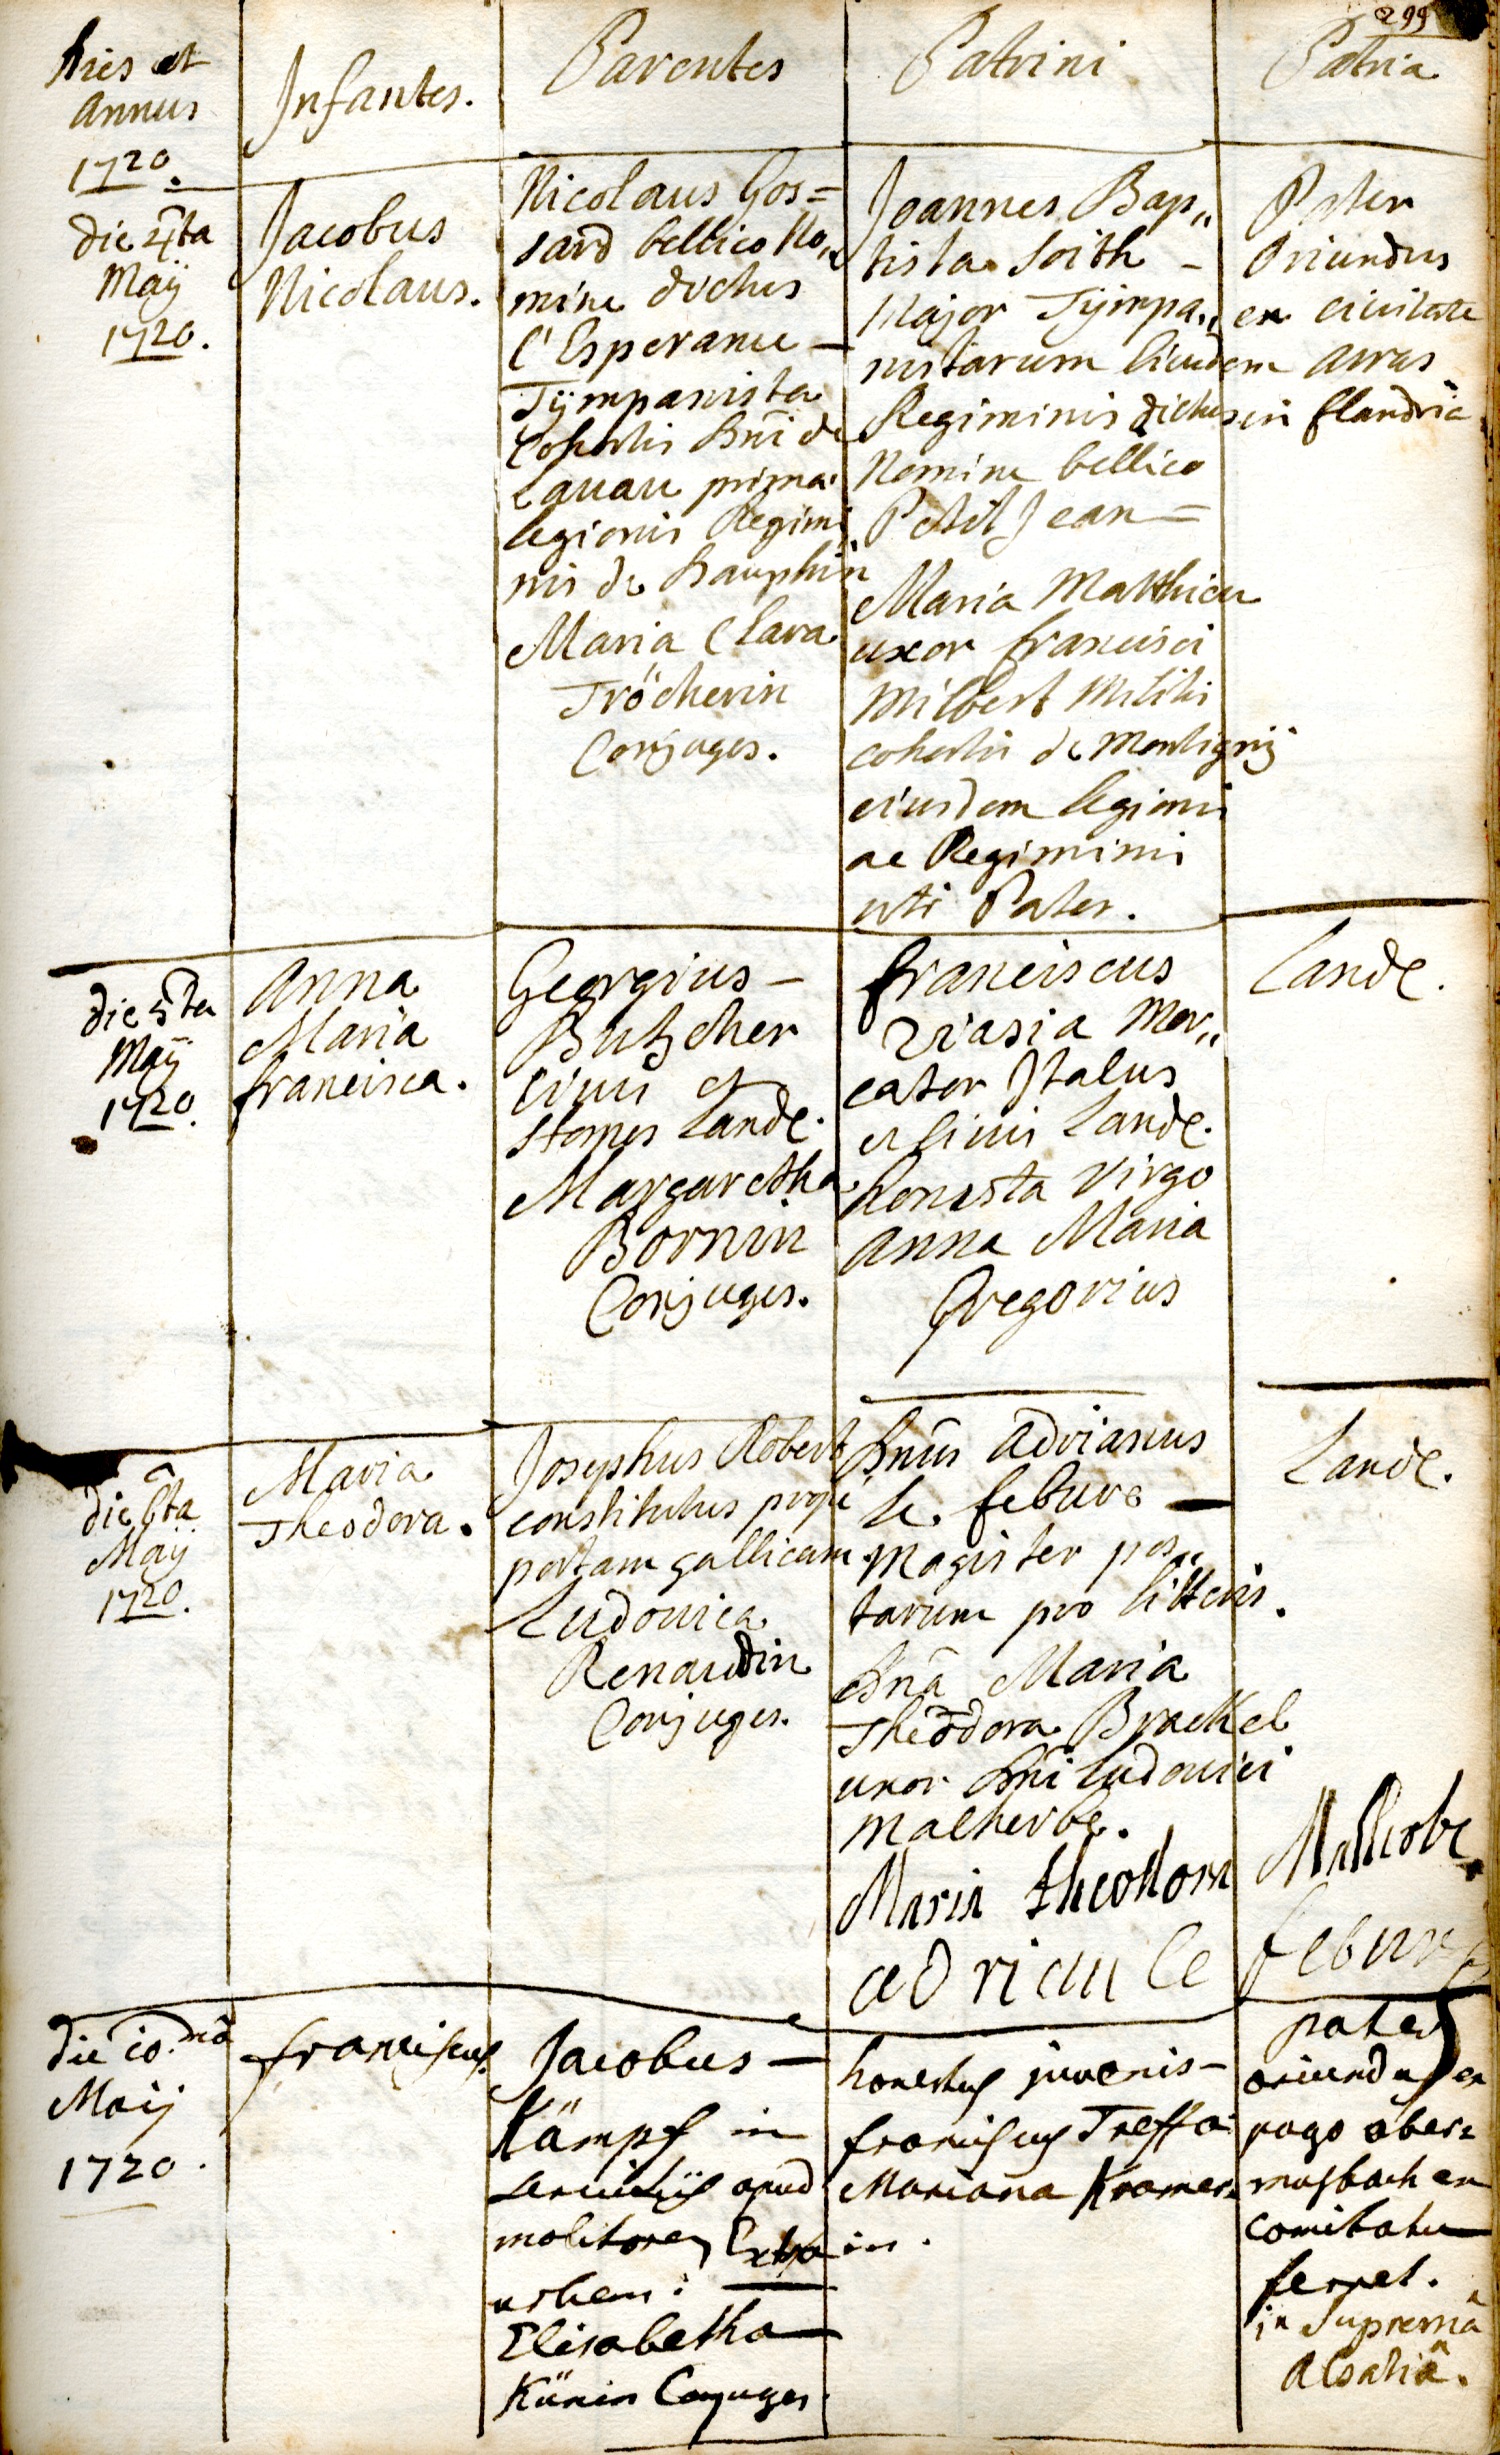 299
Dies et
Annus
1720.
Infantes.
Parentes
Patrini
Patria
die 4ta
Maÿ
1720.
Jacobus
Nicolaus.
Nicolaus Gos=
sard bellico No„
mine dictus
l'Esperance –
Tÿmpanista
Cohortis Dni de
Lauau primae
legionis Regimi
nis de Dauphin
Maria Clara
Tröcherin
Conjuges.
Joannes Bap„
tista Soith –
Major Tÿmpa„
nistarum eiusdem
Regiminis dictus
Nomine bellico
Petit Jean =
Maria Matthieu
uxor francisci
Milbert Militis
cohortis de Montignÿ
eiusdem legionis
ac Regiminis
uti Pater.
Pater
Oriundus
ex ciuitate
Arras
in flandria
die 5ta
Maÿ
1720.
Anna
Maria
francisca.
Georgius –
Butscher
Ciuis et
Hospes Landl.
Margaretha
Bornin
Conjuges.
franciscus
Viasia Mer„
cator Italus
et Ciuis Landl.
honesta Virgo
Anna Maria
Gregorius
Landl.
die 6ta
Maÿ
1720.
Maria
Theodora.
Josephus Robert
constitutus prope
portam gallicam
Ludouica
Renaudin
Conjuges.
Dnus Adrianus
le febure —
Magister pos„
tarum pro litteris.
Dna Maria
Theodora Brackel
uxor Dni Ludouici
Malherbe.
Landl.
Maria theodora Malherbe
adrian le febure
die 10.ma
Maij
1720.
franciscus.
Jacobus —
Kämpf in
seruitijs apud
molitorem Extra
urbem:
Elisabetha
Künin Conjuges.
honestus juuenis –
franciscus Treffa:
Mariana Kramer=
in.
pater
oriundus ex
pago ober=
musbach ex
Comitatu
ferret.
in Supremâ
Alsatiâ.